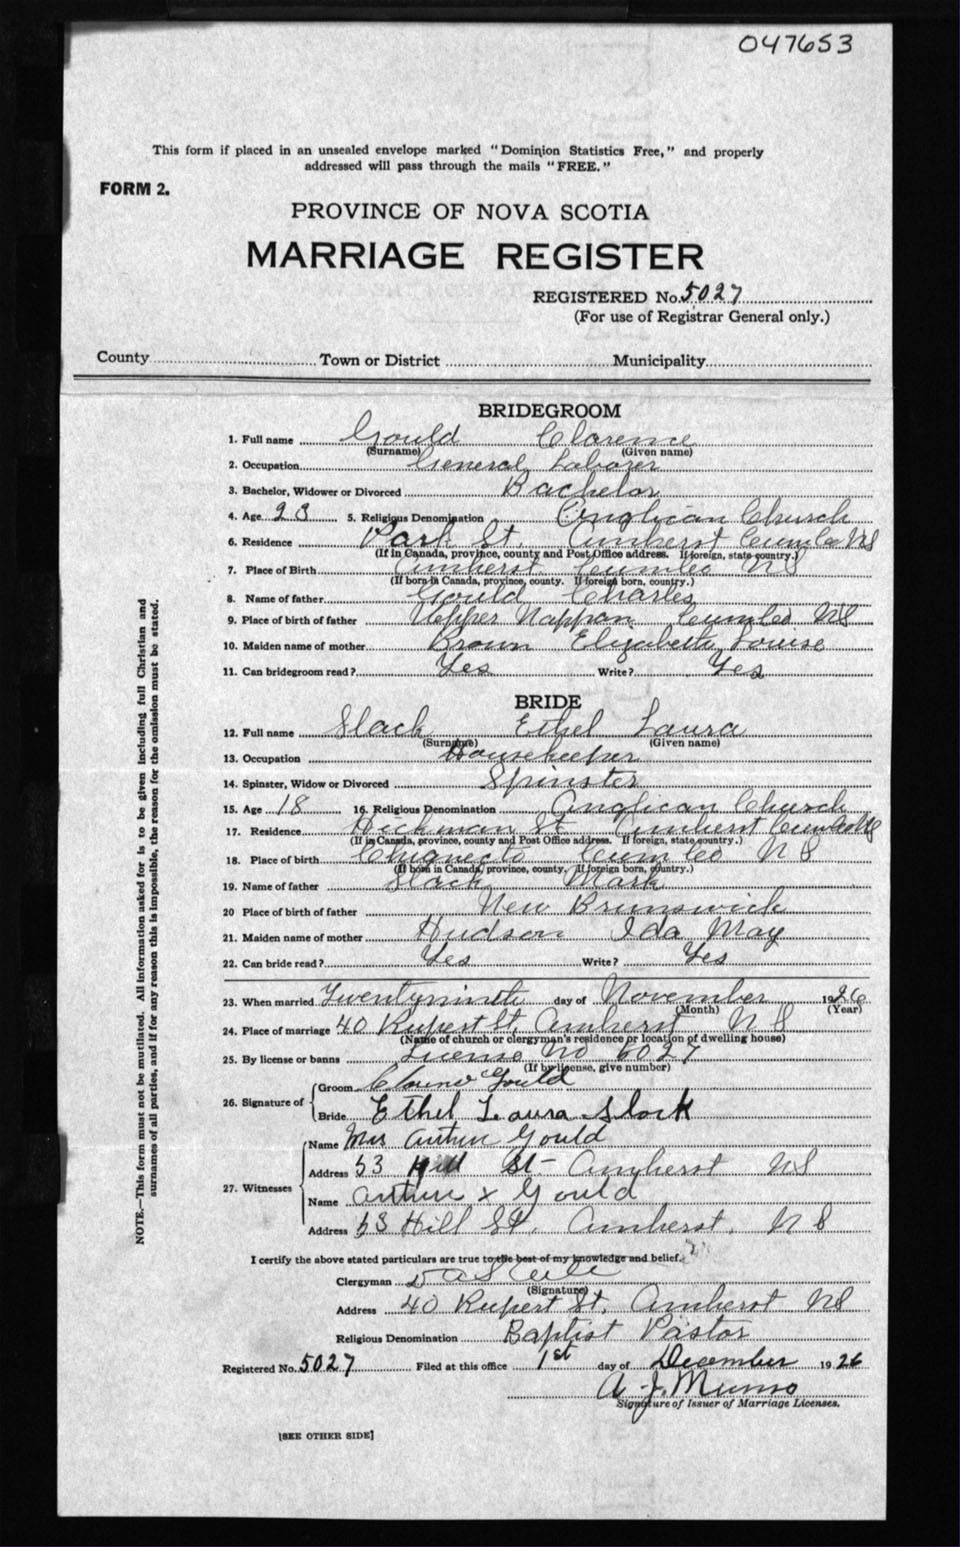 047653
This form if placed in an unsealed envelope marked "Dominion Statistics Free," and properly
addressed will pass through the mails "FREE."
FORM 2.
PROVINCE OF NOVA SCOTIA
MARRIAGE REGISTER
REGISTERED No. 5027
(For use of Registrar General only.)
County Town or District Municipality
BRIDEGROOM
1. Full name Gould Clarence
(Surname) (Given name)
2. Occupation General Laborer
3. Bachelor, Widower or Divorced Bachelor
4. Age 23 5. Religious Denomination Anglican Church
6. Residence Park St. Amherst Cumb Co NS
(If in Canada, province, county and Post Office address. If foreign, state country.)
7. Place of Birth Amherst Cumb Co NS
(If born in Canada, province, county. If foreign born, country.)
8. Name of father Gould Charles
9. Place of birth of father Upper Nappan Cumb Co NS
10. Maiden name of mother Brown Elizabeth Louise
11. Can bridegroom read? Yes Write? Yes
BRIDE
12. Full name Slack Ethel Laura
(Surname) (Given name)
13. Occupation Housekeeper
14. Spinster, Widow or Divorced Spinster
15. Age 18 16. Religious Denomination Anglican Church
17. Residence Hickman St Amherst Cumb Co NS
(If in Canada, province, county and Post Office address. If foreign, state country.)
18. Place of birth Chignecto Cumb Co NS
(If born in Canada, province, county. If foreign born, country.)
19. Name of father Slack Mark
20 Place of birth of father New Brunswick
21. Maiden name of mother Hudson Ida May
22. Can bride read? Yes Write? Yes
23. When married Twentyninth day of November 1926
(Month) (Year)
24. Place of marriage 40 Rupert St. Amherst NS
(Name of church or clergyman's residence or location of dwelling house)
25. By license or banns License No 5027
(If by license, give number)
26. Signature of Groom Gould
Bride Ethel Laura Slack
27. Witnesses
Name Mrs Arthur Gould
Address 53 Hill St- Amherst NS
Name Arthur x Gould
Address 53 Hill St. Amherst, NS
I certify the above stated particulars are true to the best of my knowledge and belief.
Clergyman
(Signature)
Address 40 Rupert St. Amherst NS
Religious Denomination Baptist Pastor
Registered No. 5027 Filed at this office 1st day of December 1926
A. J. Munro
Signature of Issuer of Marriage Licenses.
[SEE OTHER SIDE]
NOTE.—This form must not be mutilated. All information asked for is to be given including full Christian and
surnames of all parties, and if for any reason this is impossible, the reason for the omission must be stated.